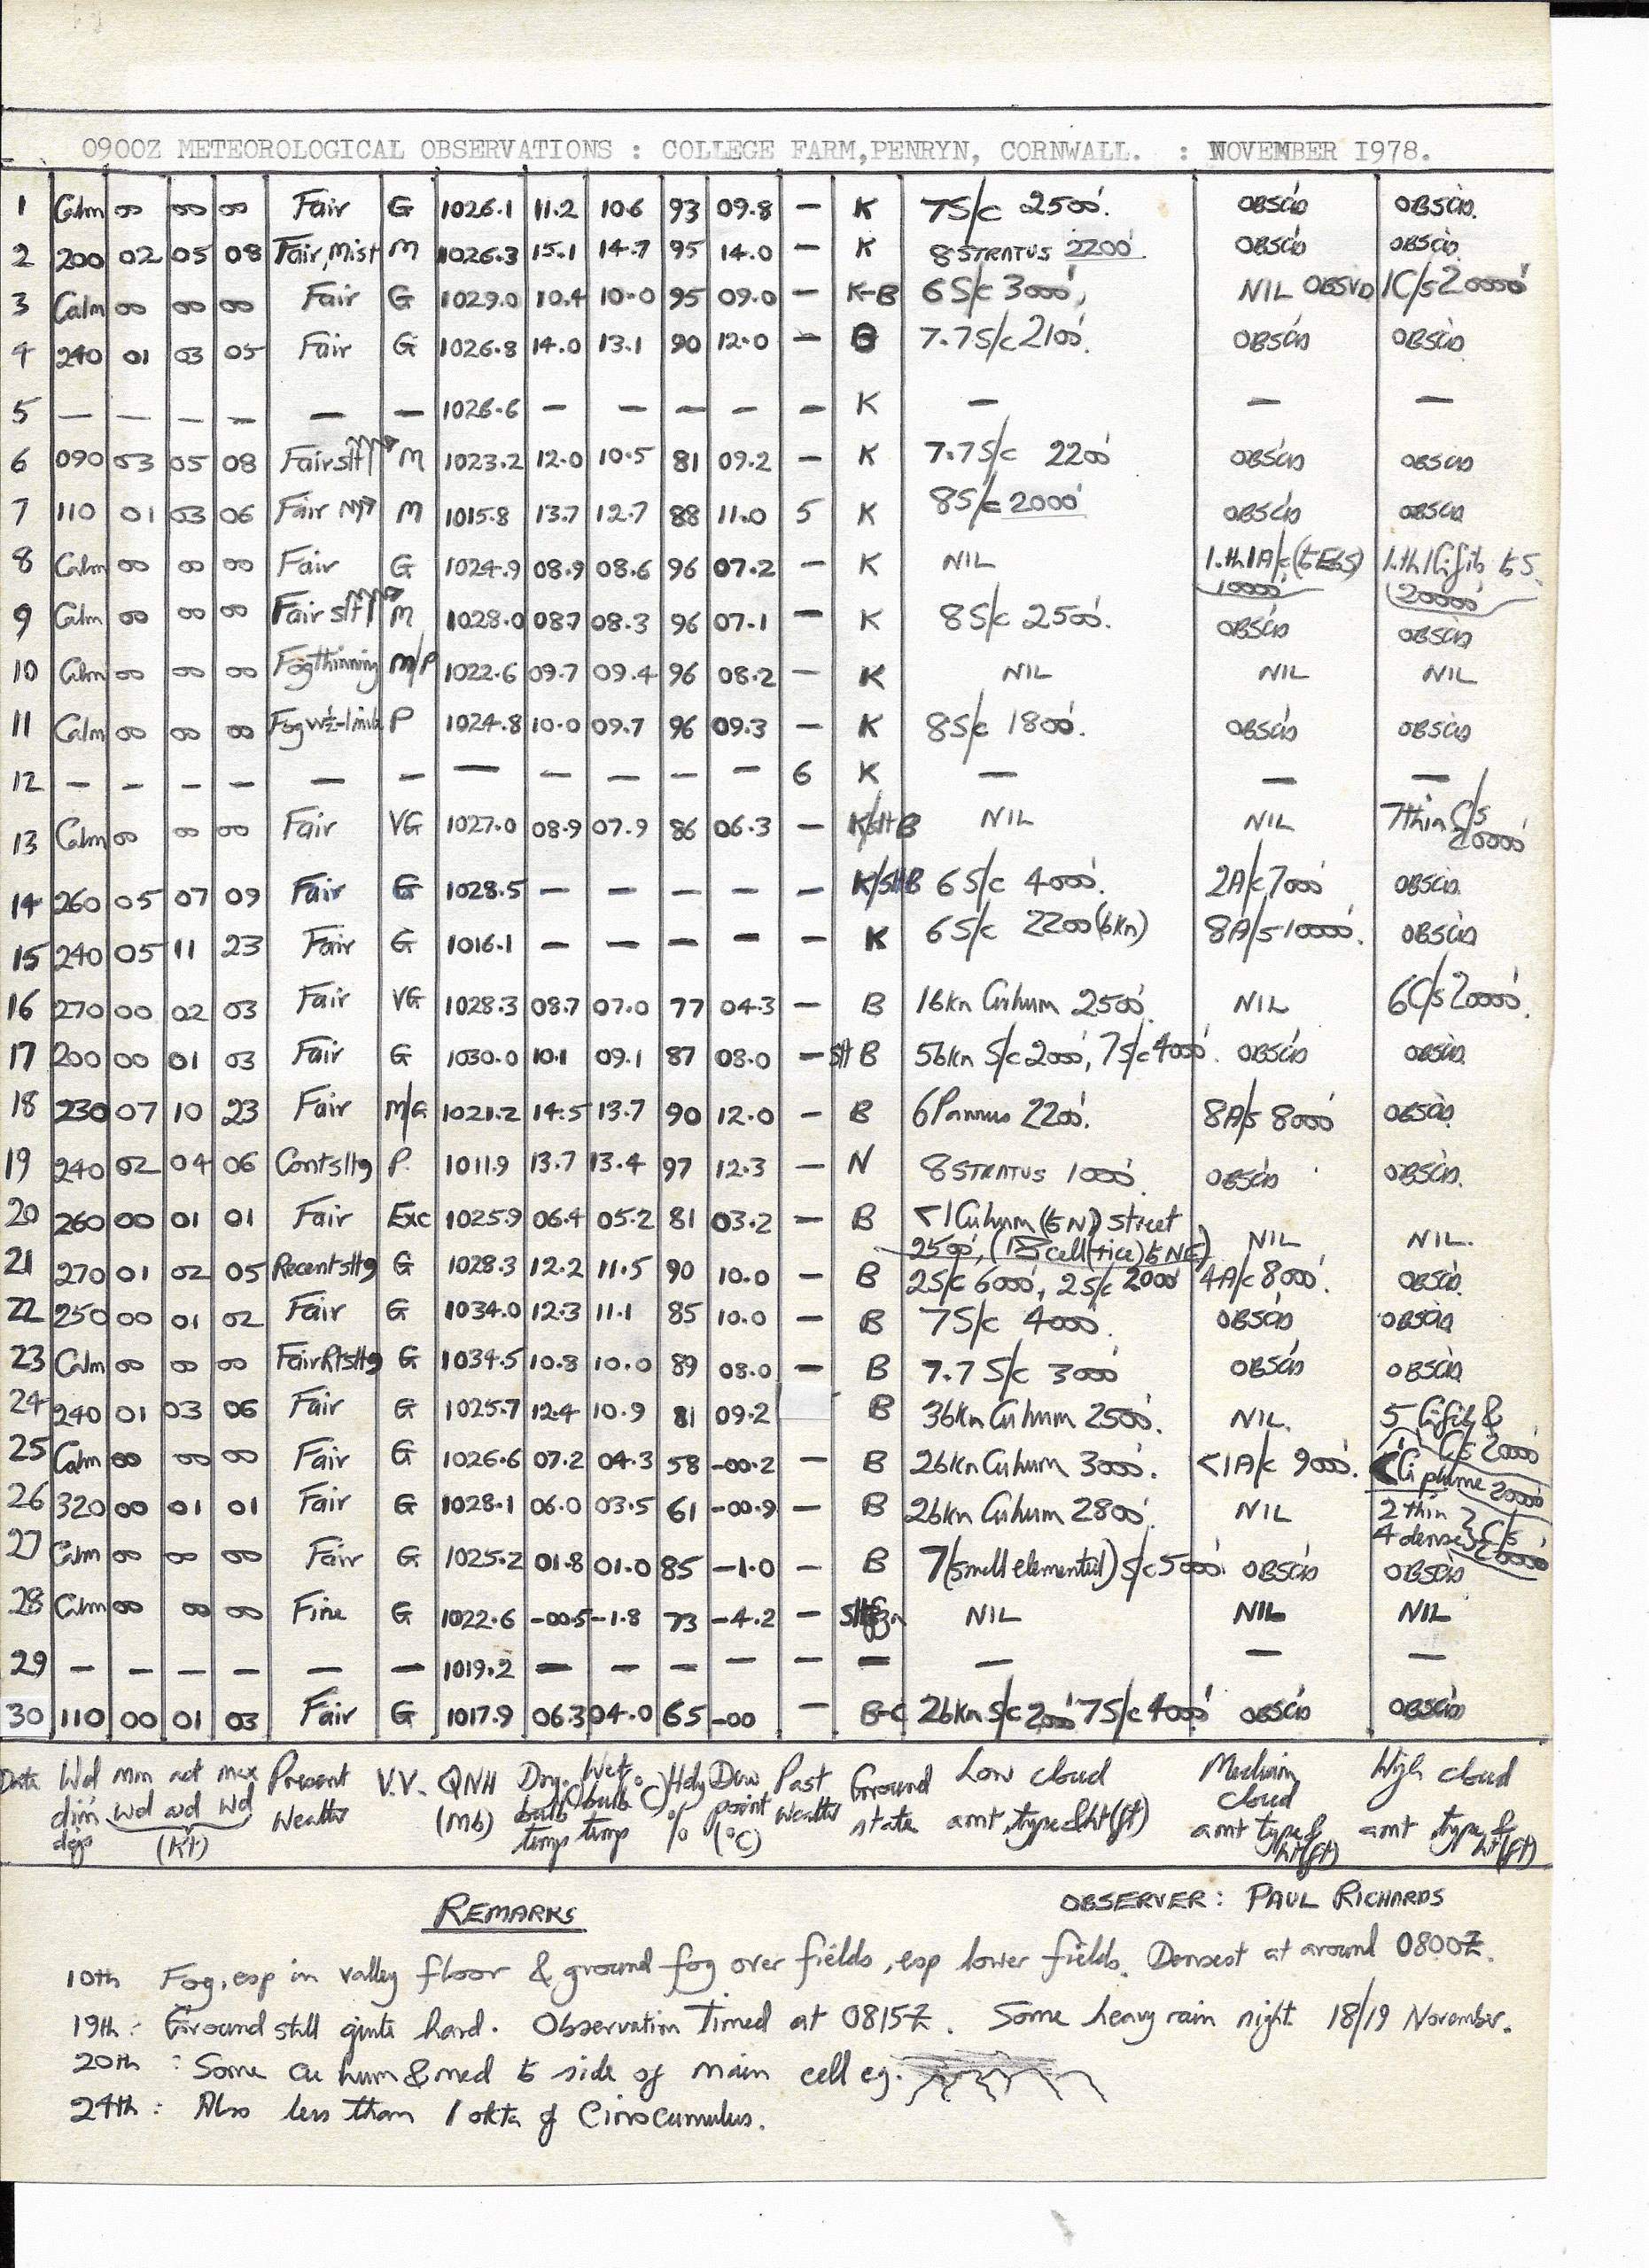 0900Z METEOROLOGICAL OBSERVATIONS : COLLEGE FARM, PENRYN, CORNWALL. : NOVEMBER 1978.
1 Calm 00 00 00 Fair G 1026.1 11.2 10.6 93 09.8 — K 7S/c 2500'. OBSCD OBSCD.
2 200 02 05 08 Fair, Mist M 1026.3 15.1 14.7 95 14.0 — K 8 STRATUS 2200' OBSCD OBSCD.
3 Calm 00 00 00 Fair G 1029.0 10.4 10.0 95 09.0 — K-B 6 S/c 3000', NIL OBSVD 1C/s 20000'
4 240 01 03 05 Fair G 1026.8 14.0 13.1 90 12.0 — 7.7 S/c 2100'. OBSCD OBSCD
5 — — — — — — 1026.6 — — — — — K — — —
6 090 03 05 08 Fair slt M 1023.2 12.0 10.5 81 09.2 — K 7.7 S/c 2200' OBSCD OBSCD
7 110 01 03 06 Fair M 1015.8 13.7 12.7 88 11.0 5 K 8S/c 2000' OBSCD OBSCD
8 Calm 00 00 00 Fair G 1024.9 08.9 08.6 96 07.2 — K NIL 1.th 1A/c (to E&S) 10000' 1.th 1Cifib to S. 20000'
9 Calm 00 00 00 Fair slt M 1028.0 08.7 08.3 96 07.1 — K 8 S/c 2500'. OBSCD OBSCD
10 Calm 00 00 00 Fog thinning M/P 1022.6 09.7 09.4 96 08.2 — K NIL NIL NIL
11 Calm 00 00 00 Fog P 1024.8 10.0 09.7 96 09.3 — K 8S/c 1800'. OBSCD OBSCD
12 — — — — — — — — — — — 6 K — — —
13 Calm 00 00 00 Fair VG 1027.0 08.9 07.9 86 06.3 — K/slt B NIL NIL 7thin C/s 20000'
14 260 05 07 09 Fair G 1028.5 — — — — — K/slt B 6 S/c 4000'. 2A/c 7000' OBSCD.
15 240 05 11 23 Fair G 1016.1 — — — — — K 6 S/c 2200' (6kn) 8A/s 10000'. OBSCD
16 270 00 02 03 Fair VG 1028.3 08.7 07.0 77 04.3 — B 1 6kn Cuhum 2500'. NIL 6C/s 20000'.
17 200 00 01 03 Fair G 1030.0 10.1 09.1 87 08.0 — slt B 5 6kn S/c 2000', 7 S/c 4000'. OBSCD OBSCD.
18 230 07 10 23 Fair M/G 1021.2 14.5 13.7 90 12.0 — B 6 Pannus 2200'. 8A/s 8000' OBSCD.
19 240 02 04 06 Cont slt P. 1011.9 13.7 13.4 97 12.3 — N 8 STRATUS 1000'. OBSCD OBSCD.
20 260 00 01 01 Fair Exc 1025.9 06.4 05.2 81 03.2 — B <1 Cuhum (to N) street NIL NIL.
2500', cell to NE)
21 270 01 02 05 Recent slt G 1028.3 12.2 11.5 90 10.0 — B 2S/c 6000', 2 S/c 2000' 4A/c 8000'. OBSCD.
22 250 00 01 02 Fair G 1034.0 12.3 11.1 85 10.0 — B 7 S/c 4000'. OBSCD OBSCD
23 Calm 00 00 00 Fair G 1034.5 10.8 10.0 89 08.0 — B 7.7 S/c 3000' OBSCD OBSCD
24 240 01 03 06 Fair G 1025.7 12.4 10.9 81 09.2 B 3 6kn Cu hum 2500'. NIL. 5 Cifib & C/s 20000'
25 Calm 00 00 00 Fair G 1026.6 07.2 04.3 58 -00.2 — B 2 6kn Cuhum 3000'. <1A/c 9000'. Ci plume 20000'
26 320 00 01 01 Fair G 1028.1 06.0 03.5 61 -00.9 B 2 6kn Cuhum 2800'. NIL 2 thin 4 dense } C/s 20000'
27 Calm 00 00 00 Fair G 1025.2 01.8 01.0 85 -1.0 — B 7 (small elemented) S/c 5000' OBSCD OBSCD
28 Calm 00 00 00 Fine G 1022.6 -00.5 -1.8 73 -4.2 — NIL NIL NIL
29 — — — — — — 1019.2 — — — — — — — — —
30 110 00 01 03 Fair G 1017.9 06.3 04.0 65 -00 — B-C 2 6kn S/c 2000' 7 S/c 4000' OBSCD OBSCD
Date Wd dirn degs min act max wd wd wd (Kt) Present Weather V.V. QNH (Mb) Dry bulb temp Wet bulb temp (°C) Hdy % Dew point (°C) Past Weather Ground state Low cloud amt, type & ht (ft) Medium cloud amt type & ht (ft) High cloud amt, type & ht (ft)
OBSERVER: PAUL RICHARDS
REMARKS
10th Fog, esp in valley floor & ground fog over fields, esp lower fields. Densest at around 0800Z.
19th: Ground still quite hard. Observation Timed at 0815Z. Some heavy rain night 18/19 November.
20th: Some cu hum & med to side of main cell eg.
24th: Also less than 1 okta of Cirrocumulus.